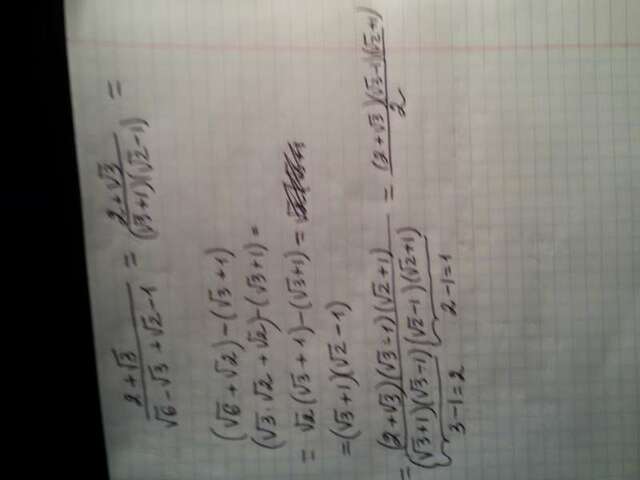 (2+√3)/(√6-√3+√2-1) = (2+√3)/((√3+1)(√2-1)) =
(√6+√2)-(√3+1)
(√3·√2+√2)-(√3+1)=
= √2(√3+1)-(√3+1)=
=(√3+1)(√2-1)
= ((2+√3)(√3-1)(√2+1))/((√3+1)(√3-1)(√2-1)(√2+1)) = ((2+√3)(√3-1)(√2+1))/2
3-1=2 2-1=1